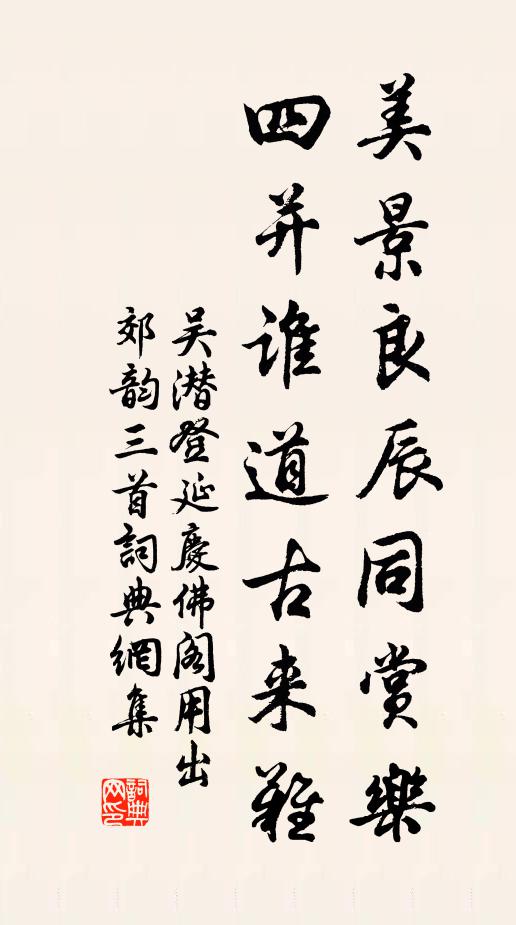 美景良辰同赏樂
四并谁道古来難
吴潜登延慶佛阁用出
郊韵三首詞典網集
詞典网印